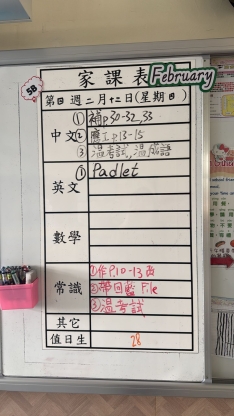 家課表
February
5B
第四週二月十二日(星期四)
中文
①補p30-32,33
② p.13-15
③温考試,温成語
英文
①Padlet
數學
常識
①作P.10-13改
②帶回藍File
③温考試
其它
值日生
28